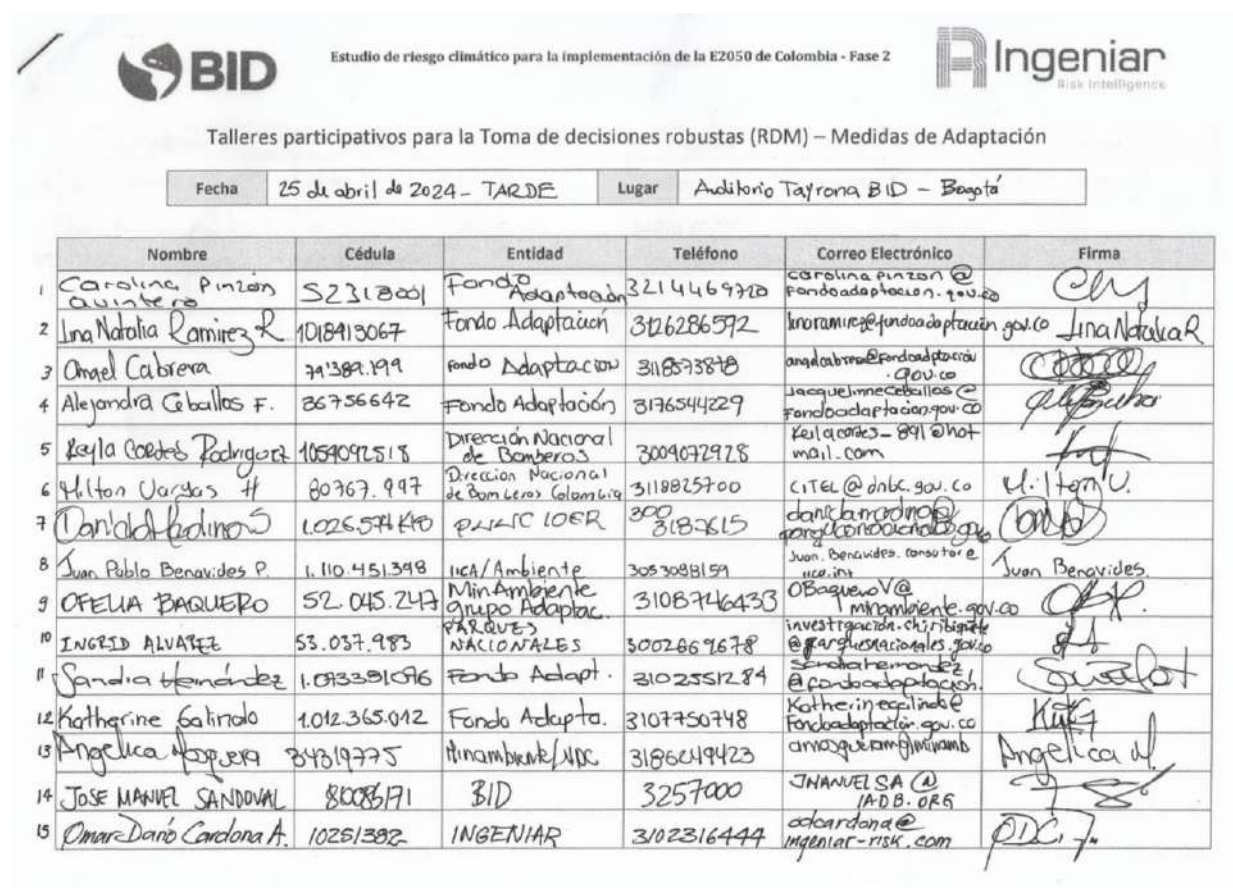 BID
Estudio de riesgo climático para la implementación de la E2050 de Colombia - Fase 2
Ingeniar
Risk Intelligence
Talleres participativos para la Toma de decisiones robustas (RDM) – Medidas de Adaptación
Fecha 25 de abril de 2024 - TARDE Lugar Auditorio Tayrona BID - Bogotá
Nombre Cédula Entidad Teléfono Correo Electrónico Firma
1 Carolina Pinzón Quintero 52318001 Fondo Adaptación 3214469720 carolinapinzon@fondoadaptacion.gov.co
2 Lina Natalia Ramirez R 1018413067 Fondo Adaptación 3126286592 linaramirez@fondoadaptacion.gov.co Lina Natalia R
3 Angel Cabrera 79'389.199 Fondo Adaptacion 3118573878 angelcabrera@fondoadptación.gov.co
4 Alejandra Ceballos F. 36756642 Fondo Adaptación 3176544229 Jacquelinneceballos@fondoadaptacion.gov.co
5 Keyla Cortés Rodriguez 1059092518 Dirección Nacional de Bomberos 3009072928 Keilacortes_891@hotmail.com
6 Milton Vargas H 80767.997 Dirección Nacional de Bomberos Colombia 3118825700 CITEL@dnbc.gov.co Milton V.
7 Daniela Medina S 300 3187615
8 Juan Pablo Benavides P. 1.110.451.398 IICA/Ambiente 3053098159 Juan.Benavides.consultor@iica.int Juan Benavides.
9 OFELIA BAQUERO 52.045.247 MinAmbiente Grupo Adaptac. 3108746433 OBaqueroV@minambiente.gov.co
10 INGRID ALVAREZ 53.037.983 PARQUES NACIONALES 3002669678 investigación.chiribiquete@parquesnacionales.gov.co
11 Sandra Hernández 1.093381096 Fondo Adapt. 3102551284 sandrahernandez@fondoadaptación.
12 Katherine Galindo 1.012.365.012 Fondo Adapta. 3107750748 Katherinegalindo@fondoadaptación.gov.co
13 Angelica Mosquera 34319775 Minambiente/NDC 3186249423 amosqueram@minamb Angelica M.
14 JOSE MANUEL SANDOVAL 81086171 BID 3257000 JMANUELSA@IADB.ORG
15 Omar Darío Cardona A. 10251382 INGENIAR 3102316444 odcardona@ingeniar-risk.com